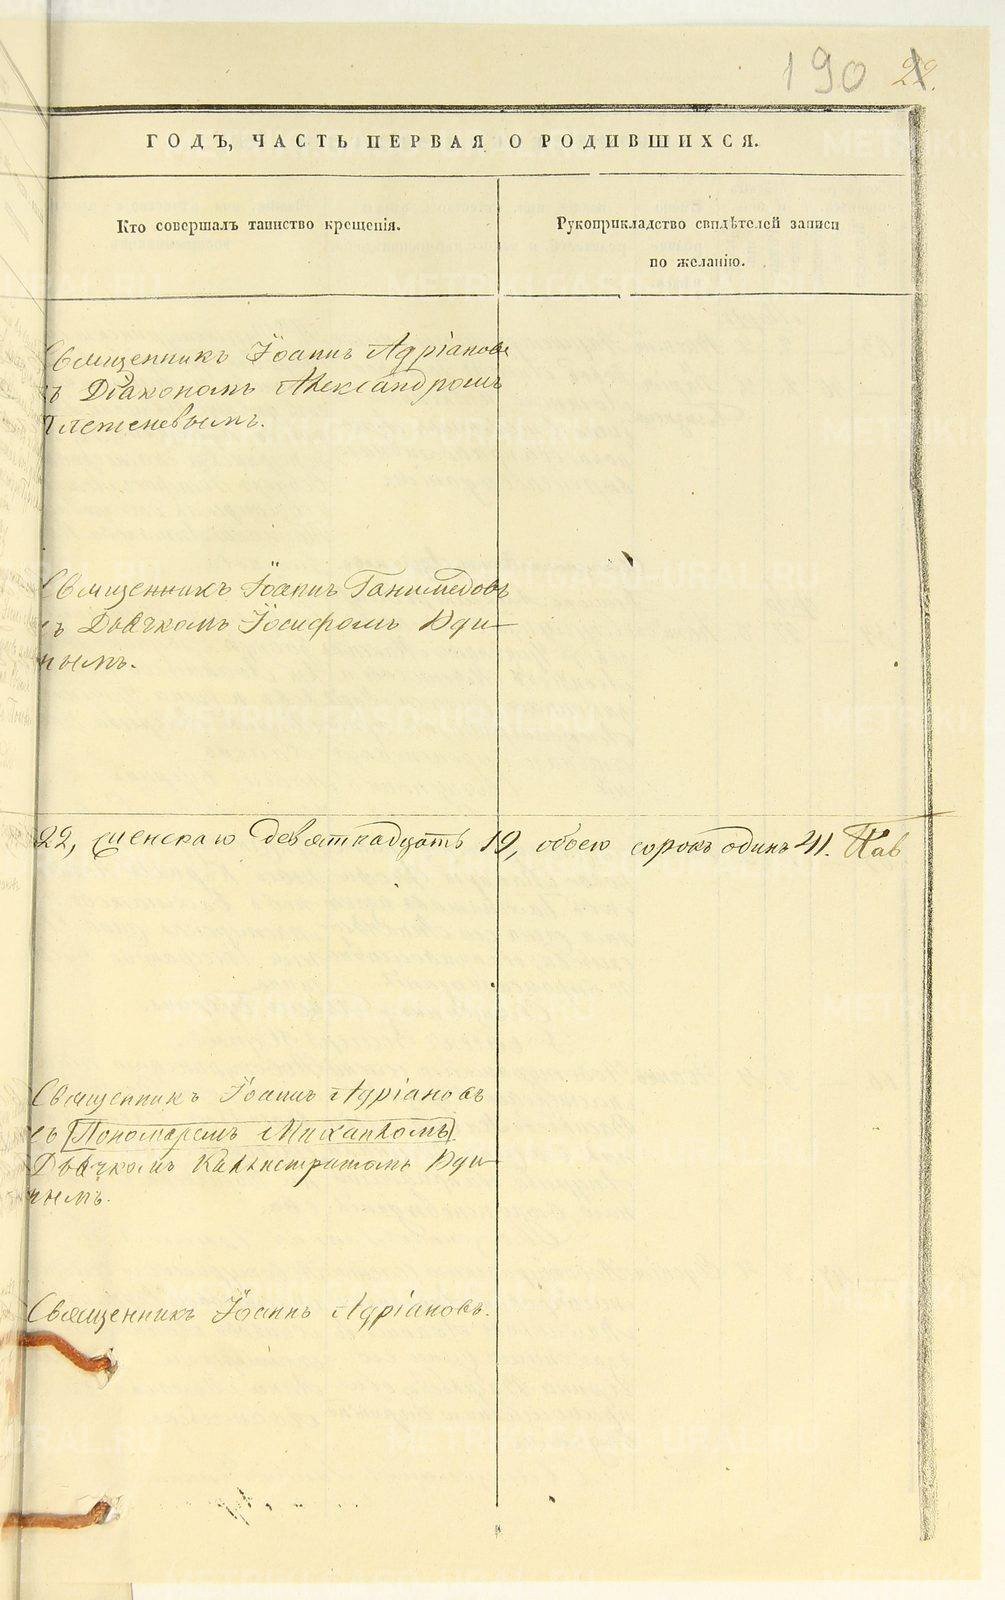 190 22.
ГОДЪ, ЧАСТЬ ПЕРВАЯ О РОДИВШИХСЯ.
Кто совершалъ таинство крещенія.
Рукоприкладство свидѣтелей записи
по желанію.
Священникъ Іоаннъ Адріановъ
съ Діакономъ Александромъ
Плетеневымъ.
Священникъ Іоаннъ Ганимедовъ
съ Дьячкомъ Іосифомъ Уди-
нымъ.
22, женскаго девятнадцать 19, обоего сорокъ одинъ 41.
Священникъ Іоаннъ Адріановъ
съ [Пономаремъ
Дьячкомъ Каллистратомъ Уди-
нымъ.
Священникъ Іоаннъ Адріановъ.
METRIKI.GASO-URAL.RU